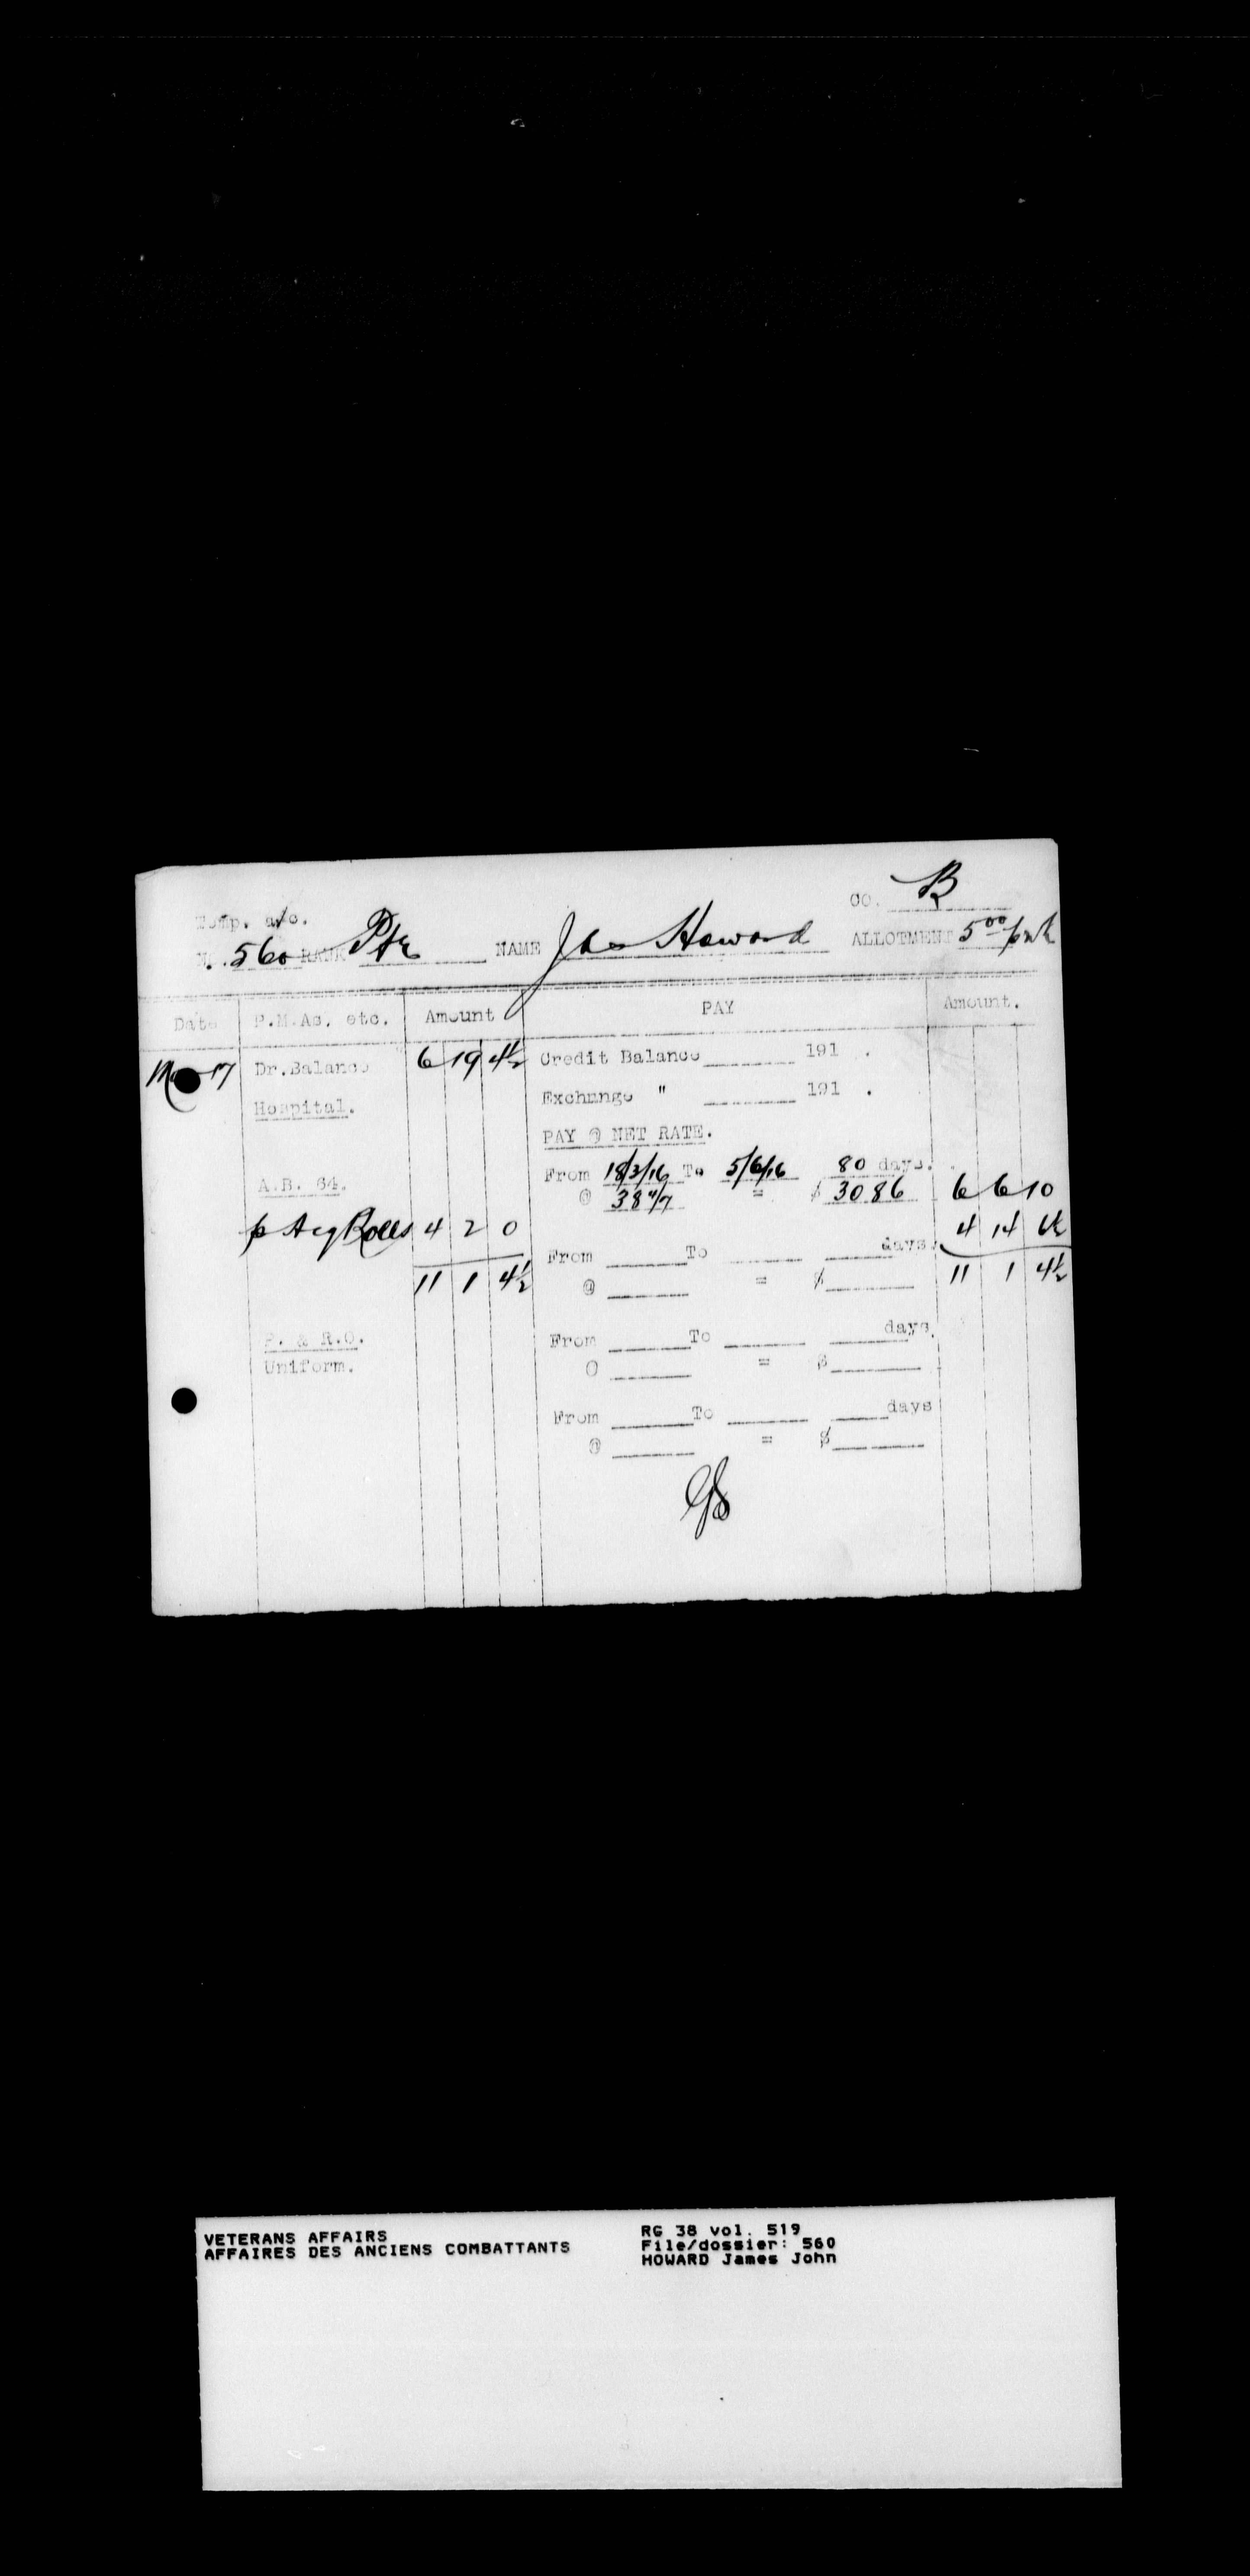 CO. B
Temp. a/c.
N. 560 RANK Pte NAME Jas Howard ALLOTMENT 5.00
Date P.M.As. etc. Amount PAY Amount.
17 Dr.Balance 6 19 4½ Credit Balance 191 .
Hospital. Exchange " 191 .
PAY @ NET RATE.
A.B. 64. From 18/3/16 To 5/6/16 80 days.
@ 38 4/7 = $ 30 86 6 6 10
p Acq Rolls 4 2 0 4 14 6½
From To days.
11 1 4½ @ = $ 11 1 4½
P. & R.O. From To days.
Uniform. @ = $
From To days
@ = $
VETERANS AFFAIRS RG 38 vol. 519
AFFAIRES DES ANCIENS COMBATTANTS File/dossier: 560
HOWARD James John